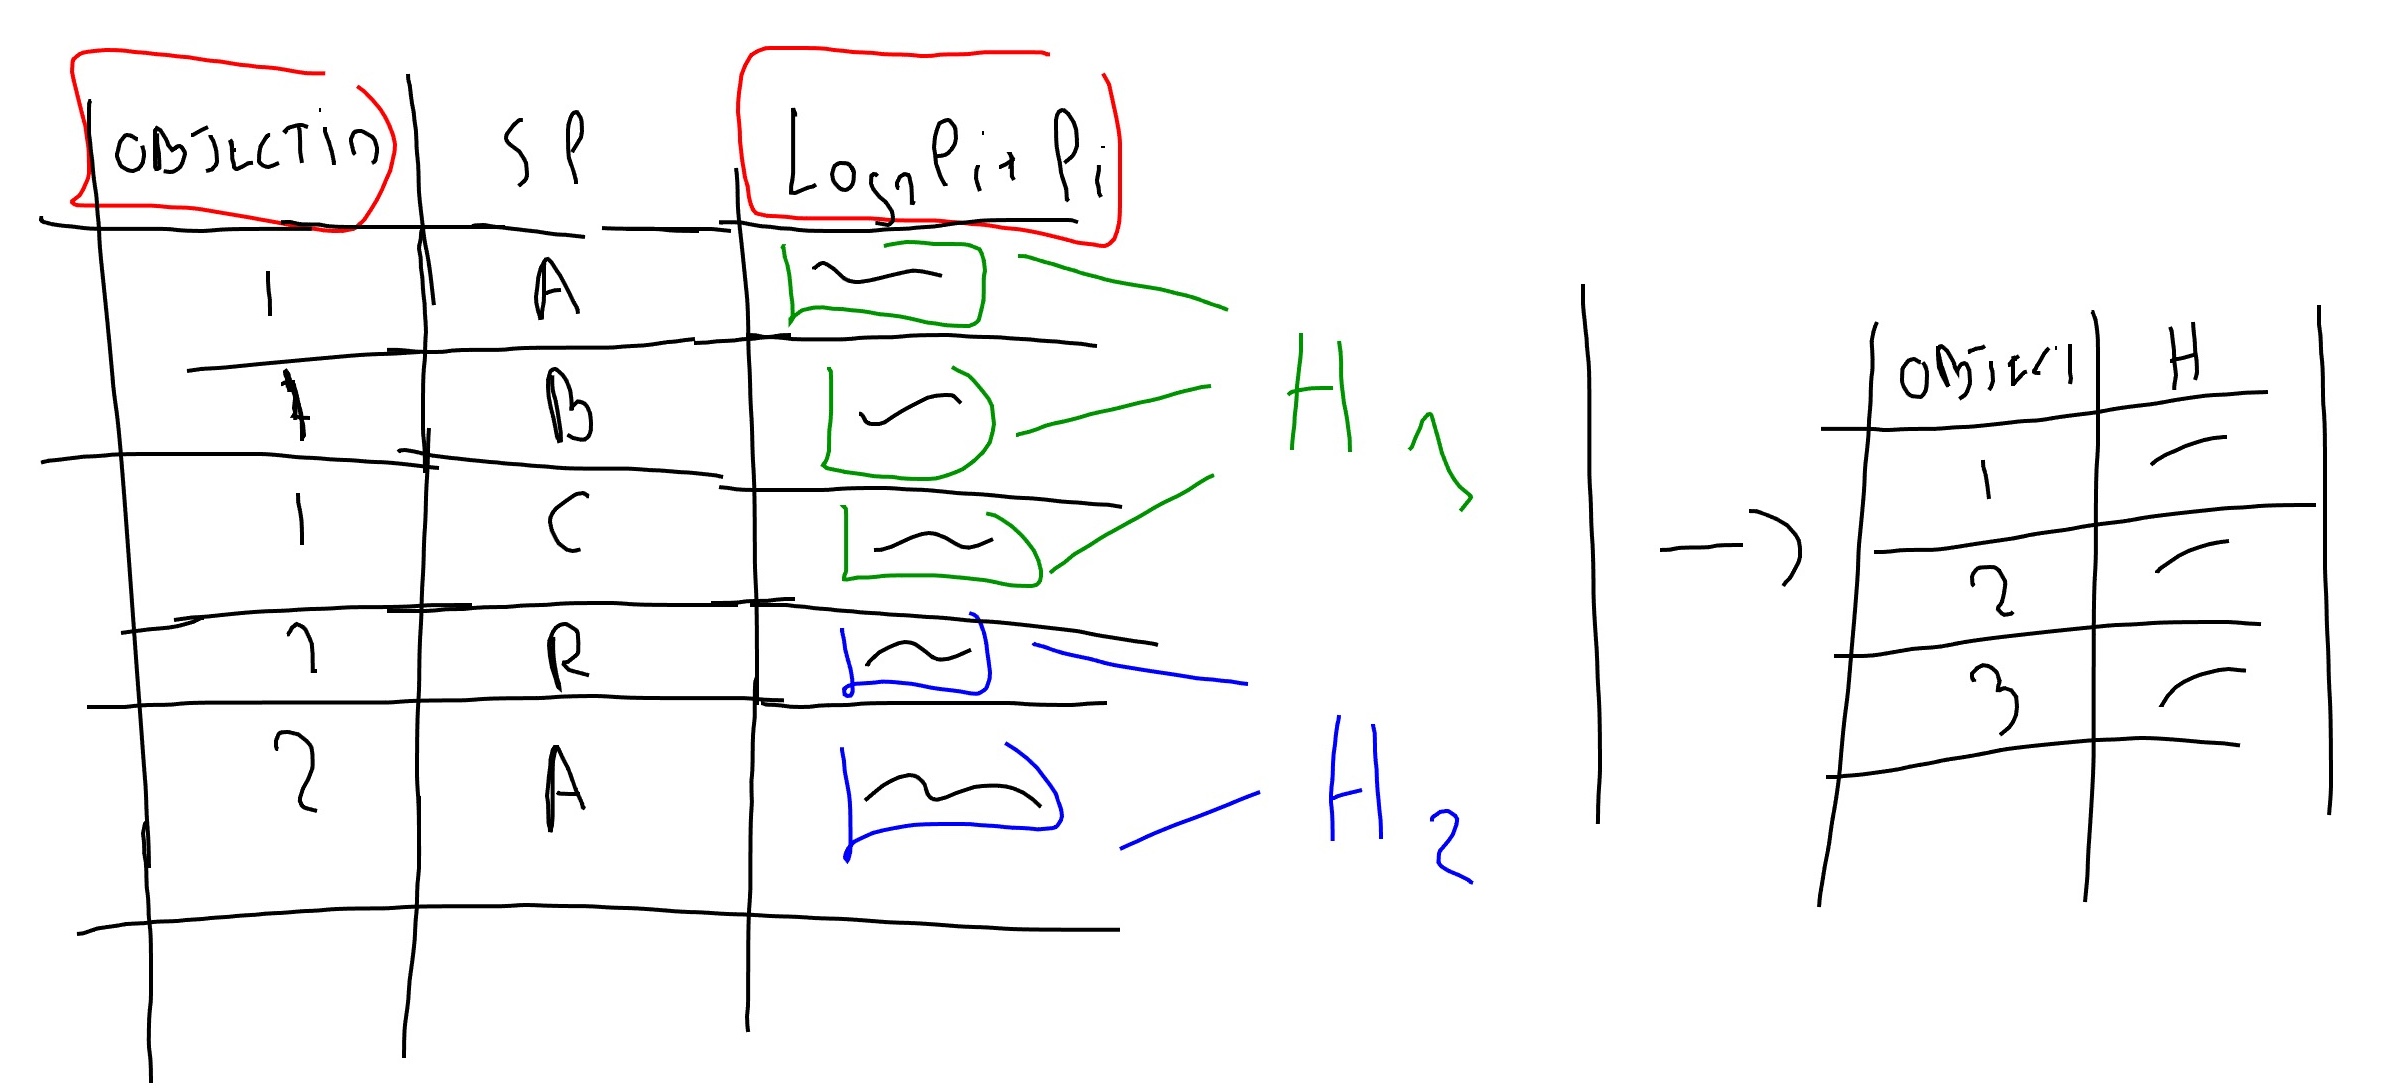 OBJECTID SP Logn Pi * Pi
1 A
1 B
1 C
2 R
2 A
H1
H2
OBJECT H
1
2
3